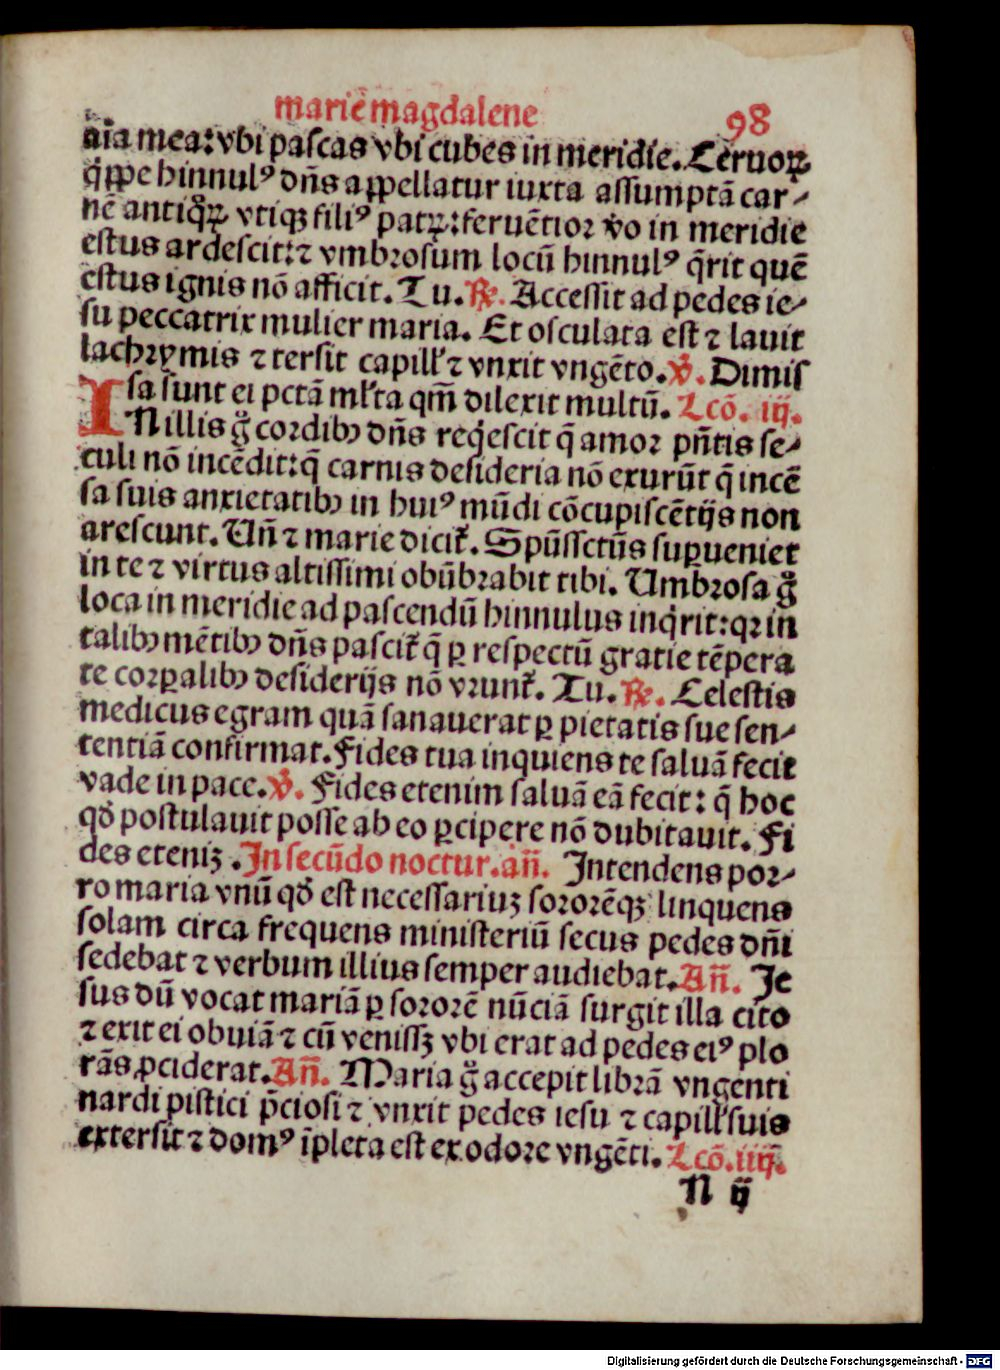 marie magdalene 98
aīa mea: vbi pascas vbi cubes in meridie. Ceruoꝝ
q̇ppe hinnulꝰ dn̄s appellatur iuxta assumptā car-
nē antiq̊ꝝ vtiqꝫ filiꝰ patꝝ: feruētior v̊o in meridie
estus ardescit: ⁊ vmbrosum locū hinnulꝰ q̄rit quē
estus ignis nō afficit. Tu. ℞. Accessit ad pedes ie-
su peccatrix mulier maria. Et osculata est ⁊ lauit
lachrymis ⁊ tersit capill' ⁊ vnxit vngēto. ℣. Dimis
sa sunt ei pctā ml'ta qm̄ dilexit multū. Lcō. iij.
IN illis g̊ cordibꝫ dn̄s reqescit q̄ amor pn̄tis se-
culi nō incēdit: q̄ carnis desideria nō exurūt q̄ incē
sa suis anxietatibꝫ in huiꝰ mūdi cōcupiscētijs non
arescunt. Un̄ ⁊ marie dicit̃. Spūssctūs suꝑueniet
in te ⁊ virtus altissimi obūbrabit tibi. Umbrosa g̊
loca in meridie ad pascendū hinnulus inq̇rit: qꝛ in
talibꝫ mētibꝫ dn̄s pascit̃ q̄ ꝑ respectū gratie tēpera
te corꝑalibꝫ desiderijs nō vrunt̃. Tu. ℞. Celestis
medicus egram quā sanauerat ꝑ pietatis sue sen-
tentiā confirmat. Fides tua inquiens te saluā fecit
vade in pace. ℣. Fides etenim saluā eā fecit: q̄ hoc
qd̊ postulauit posse ab eo ꝑcipere nō dubitauit. Fi
des eteniꝫ. In secūdo noctur. an̄. Intendens por-
ro maria vnū qd̊ est necessariuꝫ sororēqꝫ linquens
solam circa frequens ministeriū secus pedes dn̄i
sedebat ⁊ verbum illius semper audiebat. An̄. Je
sus dū vocat mariā ꝑ sororē nūciā surgit illa cito
⁊ exit ei obuiā ⁊ cū venissꝫ vbi erat ad pedes eiꝰ plo
rās ꝓciderat. An̄. Maria g̊ accepit librā vngenti
nardi pistici p̄ciosi ⁊ vnxit pedes iesu ⁊ capill' suis
extersit ⁊ domꝰ īpleta est ex odore vngēti. Lcō. iiij.
N ij
Digitalisierung gefördert durch die Deutsche Forschungsgemeinschaft - DFG